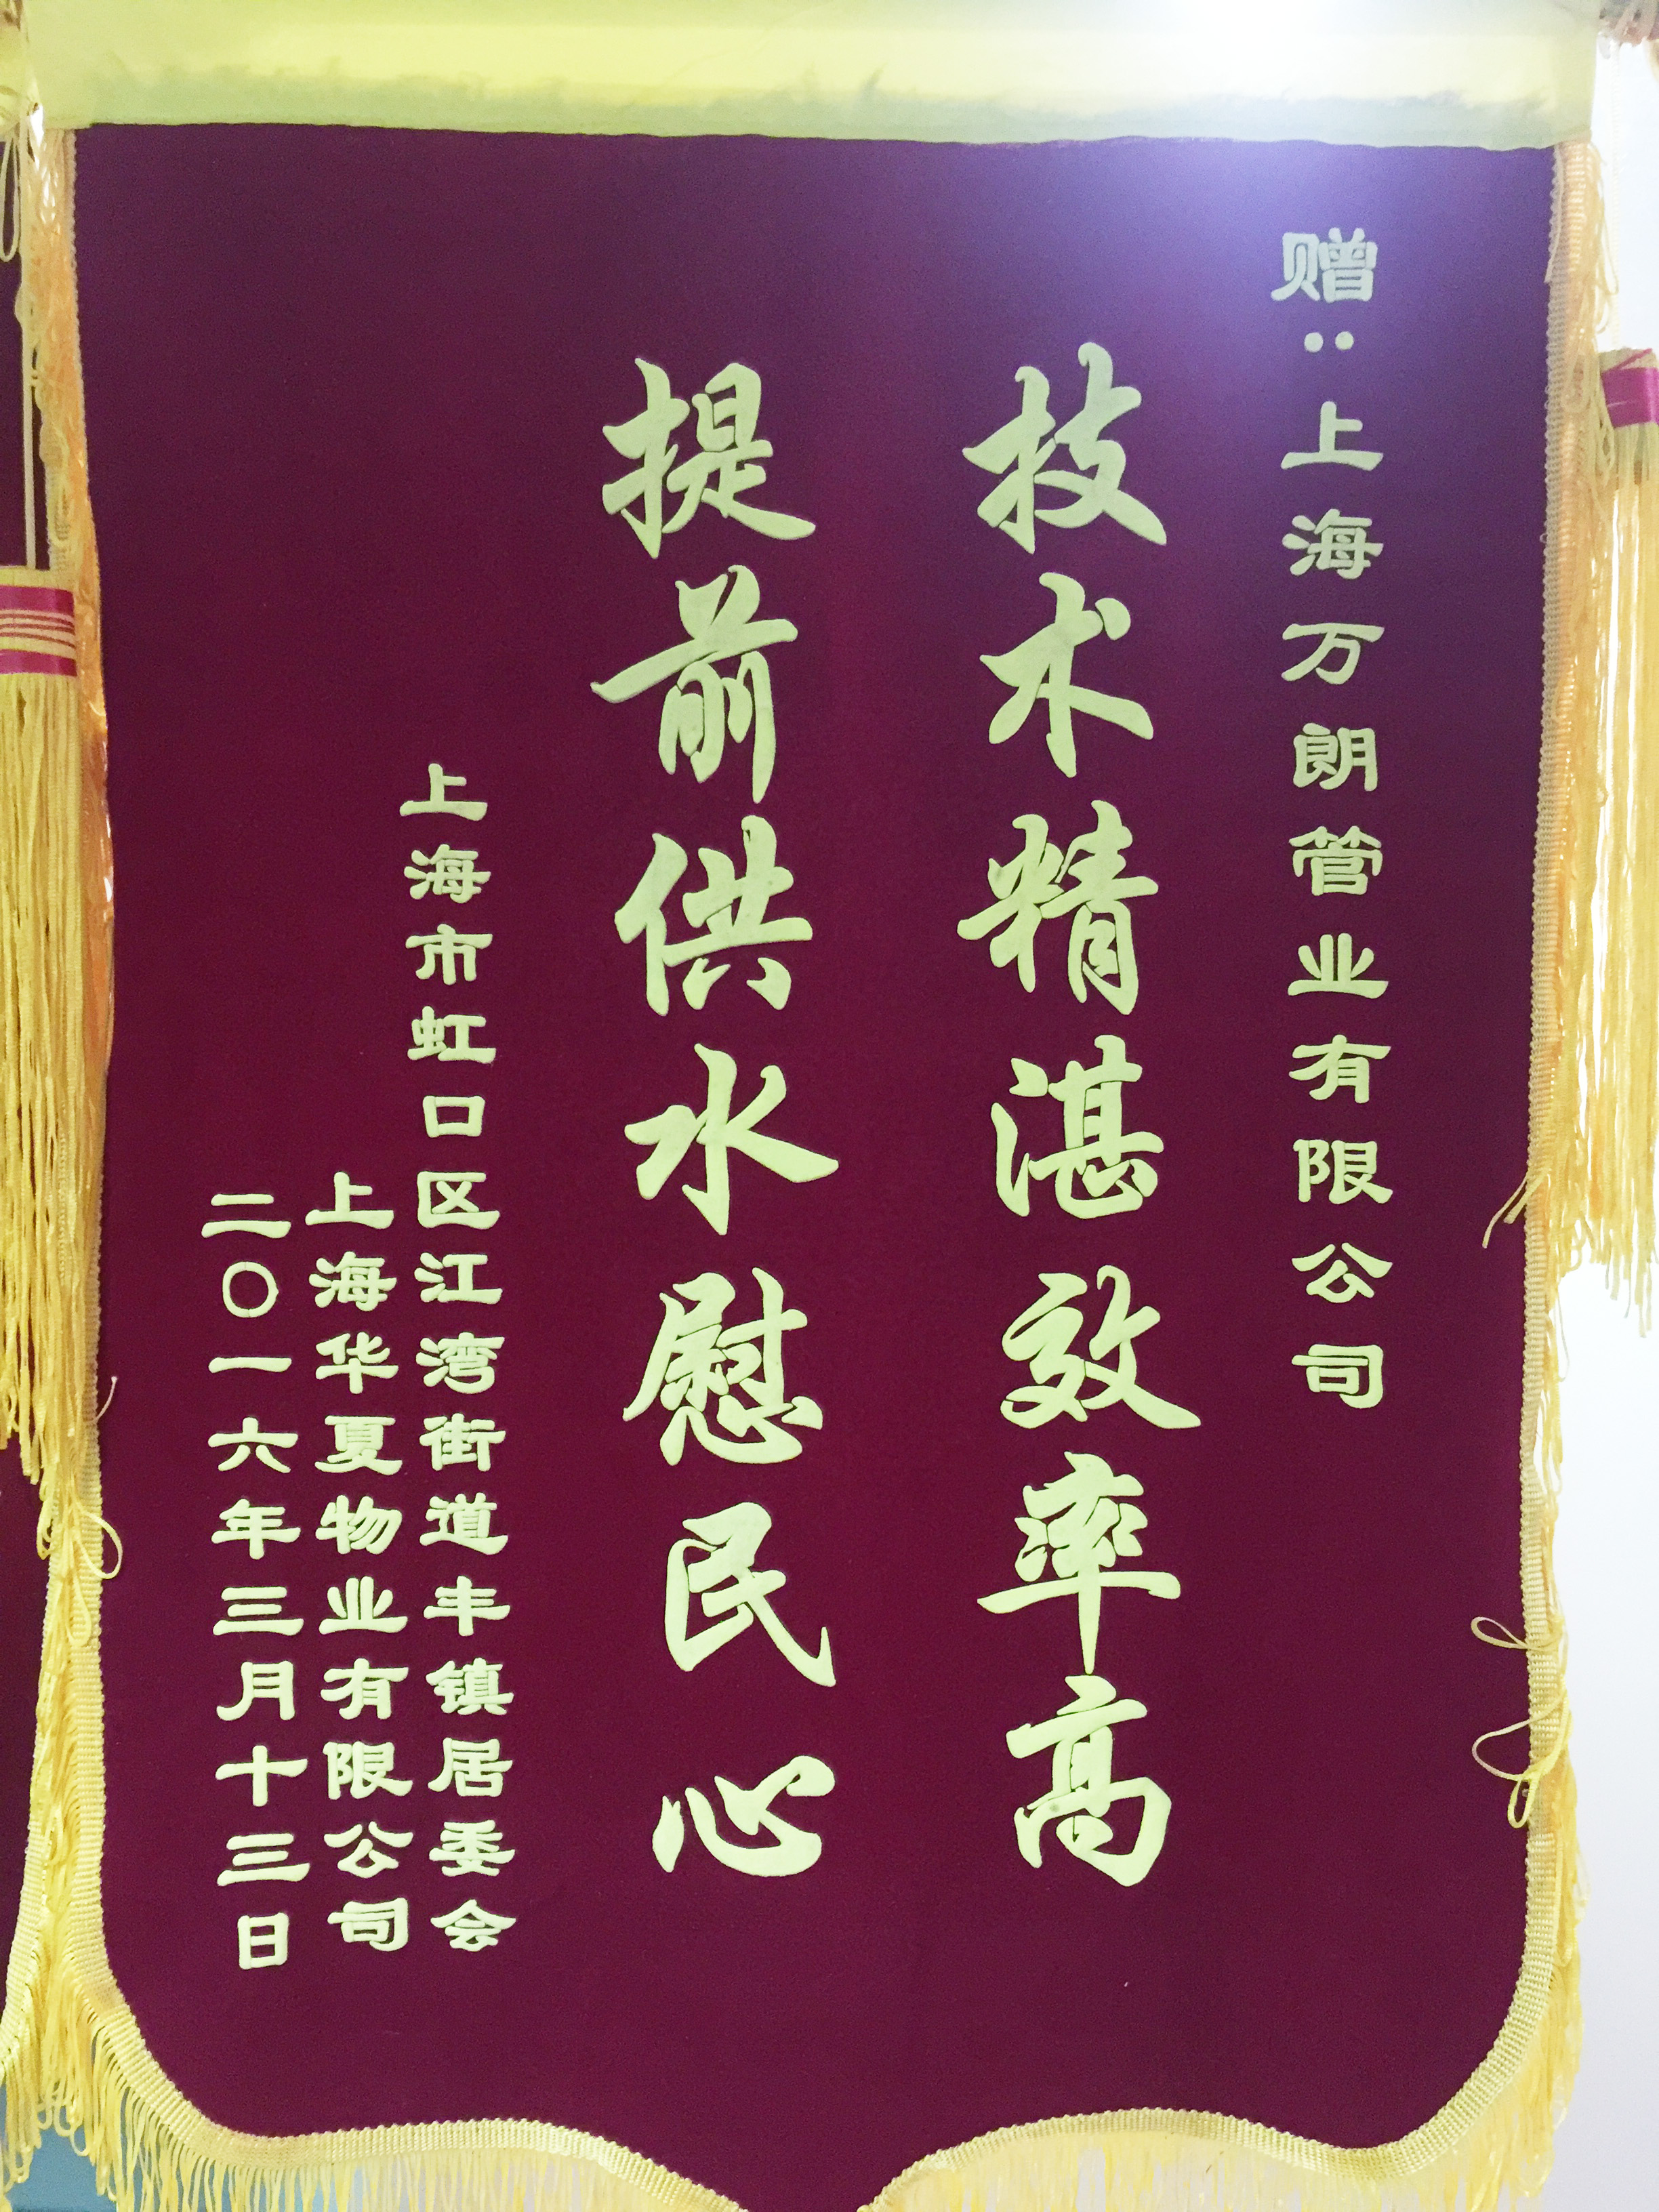 赠：上海万朗管业有限公司
技术精湛效率高
提前供水慰民心
上海市虹口区江湾街道丰镇居委会
上海华夏物业有限公司
二〇一六年三月十三日